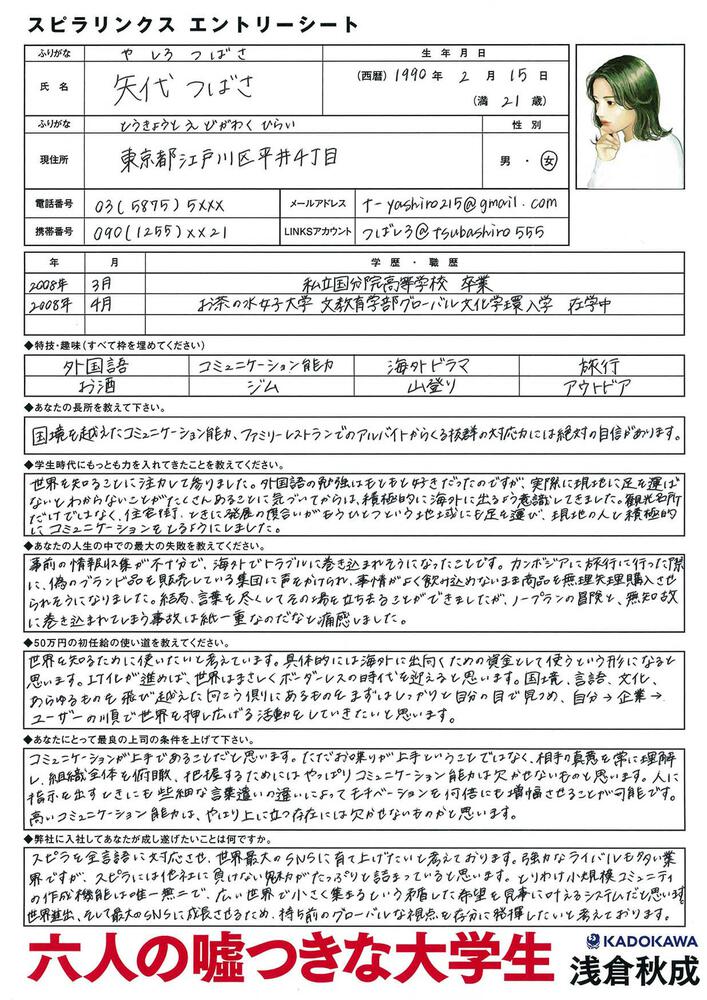 スピラリンクス エントリーシート
ふりがな やしろ つばさ 生年月日
氏名 矢代 つばさ (西暦) 1990年 2月 15日
(満 21歳)
ふりがな とうきょうと えどがわく ひらい 性別
現住所 東京都江戸川区平井4丁目 男・女
電話番号 03(5875)5XXX メールアドレス t-yashiro215@gmail.com
携帯番号 090(1255)xx21 LINKSアカウント つばしろ@tsubashiro555
年 月 学歴・職歴
2008年 3月 私立国分院高等学校 卒業
2008年 4月 お茶の水女子大学 文教育学部グローバル文化学環入学 在学中
◆特技・趣味(すべて枠を埋めてください)
外国語 コミュニケーション能力 海外ドラマ 旅行
お酒 ジム 山登り アウトドア
◆あなたの長所を教えて下さい。
国境を越えたコミュニケーション能力、ファミリーレストランでのアルバイトからくる抜群の対応力には絶対の自信があります。
◆学生時代にもっとも力を入れてきたことを教えてください。
世界を知ることに注力して参りました。外国語の勉強はもともと好きだったのですが、実際に現地に足を運ば
ないとわからないことがたくさんあることに気づいてからは、積極的に海外に出るよう意識してきました。観光名所
だけではなく、住宅街、ときに発展の度合いがもうひとつという地域にも足を運び、現地の人と積極的
にコミュニケーションをとるようにしました。
◆あなたの人生の中での最大の失敗を教えてください。
事前の情報収集が不十分で、海外でトラブルに巻き込まれそうになったことです。カンボジアに旅行に行った際
に、偽のブランド品を販売している集団に声をかけられ、事情がよく飲み込めないまま商品を無理矢理購入させ
られそうになりました。結局、言葉を尽くしてその場を立ち去ることができましたが、ノープランの冒険と、無知故
に巻き込まれてしまう事故は紙一重なのだなと痛感しました。
◆50万円の初任給の使い道を教えてください。
世界を知るために使いたいと考えています。具体的には海外に出向くための資金として使うという形になると
思います。IT化が進めば、世界はまさしくボーダーレスの時代を迎えると思います。国境、言語、文化、
あらゆるものを飛び越えた向こう側にあるものをまずはしっかりと自分の目で見つめ、自分→企業→
ユーザーの順で世界を押し広げる活動をしていきたいと思います。
◆あなたにとって最良の上司の条件を上げて下さい。
コミュニケーションが上手であることだと思います。ただお喋りが上手ということではなく、相手の真意を常に理解
し、組織全体を俯瞰、把握するためにはやっぱりコミュニケーション能力は欠かせないものと思います。人に
指示を出すときにも些細な言葉遣いの違いによってモチベーションを何倍にも増幅させることが可能です。
高いコミュニケーション能力は、やはり上に立つ存在には欠かせないものかと思います。
◆弊社に入社してあなたが成し遂げたいことは何ですか。
スピラを全言語に対応させ、世界最大のSNSに育て上げたいと考えております。強力なライバルも多い業
界ですが、スピラには他社に負けない魅力がたっぷりと詰まっていると思います。とりわけ小規模コミュニティ
の作成機能は唯一無二で、広い世界で小さく集まるという矛盾した希望を見事に叶えるシステムだと思います。
世界進出、そして最大のSNSに成長させるため、持ち前のグローバルな視点を存分に発揮したいと考えております。
六人の嘘つきな大学生 KADOKAWA
浅倉秋成